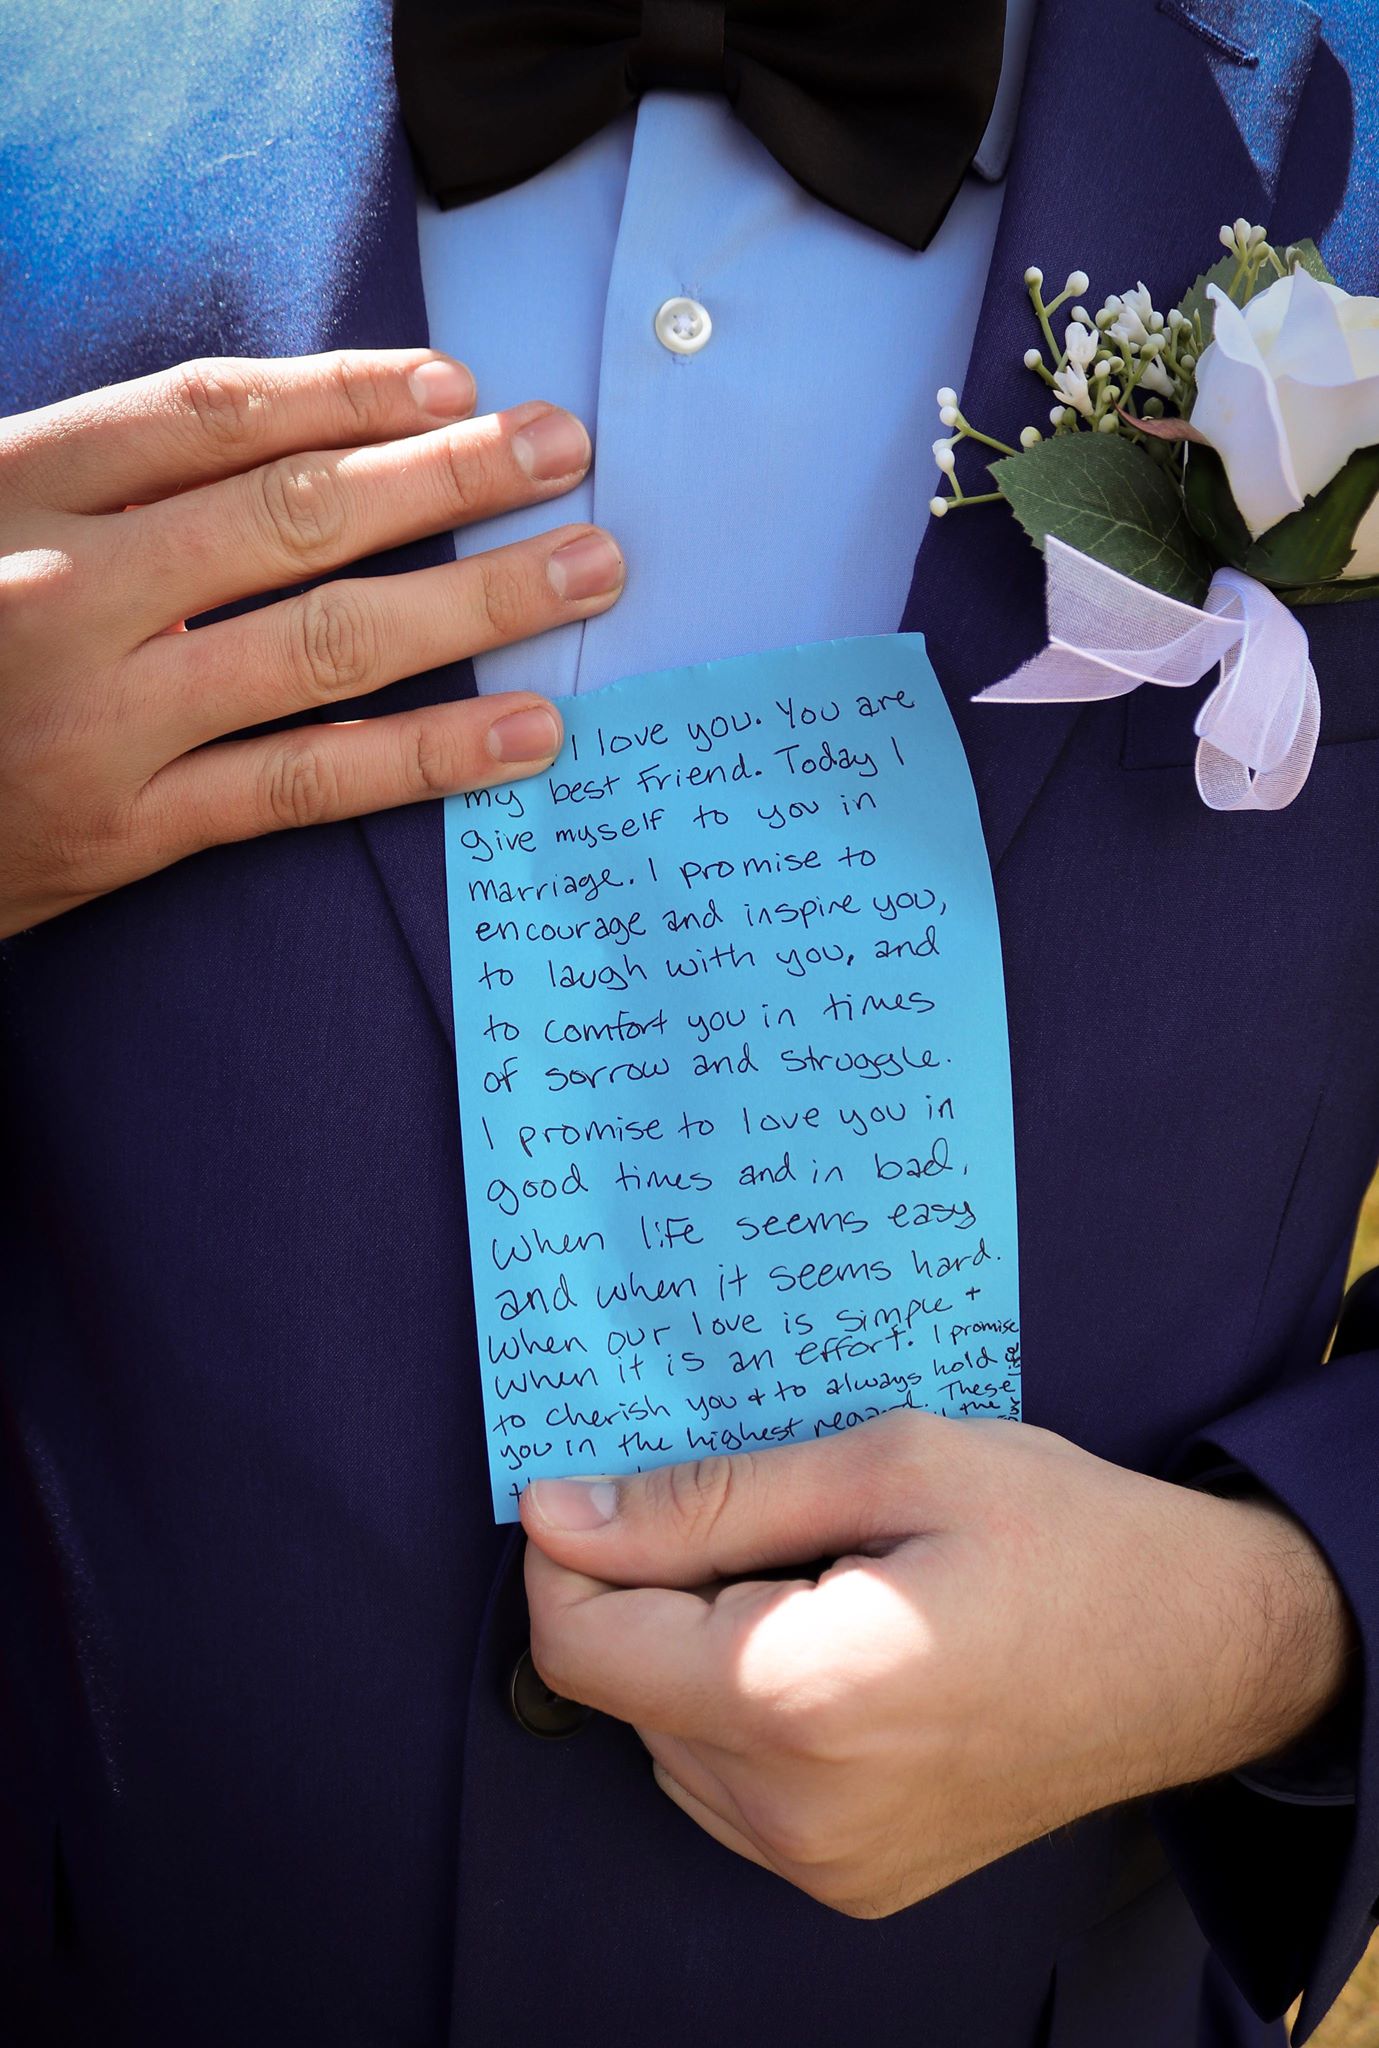 I love you. You are
my best friend. Today I
give myself to you in
marriage. I promise to
encourage and inspire you,
to laugh with you, and
to comfort you in times
of sorrow and struggle.
I promise to love you in
good times and in bad,
when life seems easy
and when it seems hard.
when our love is simple +
when it is an effort. I promise
to cherish you + to always hold
you in the highest regard. These
the